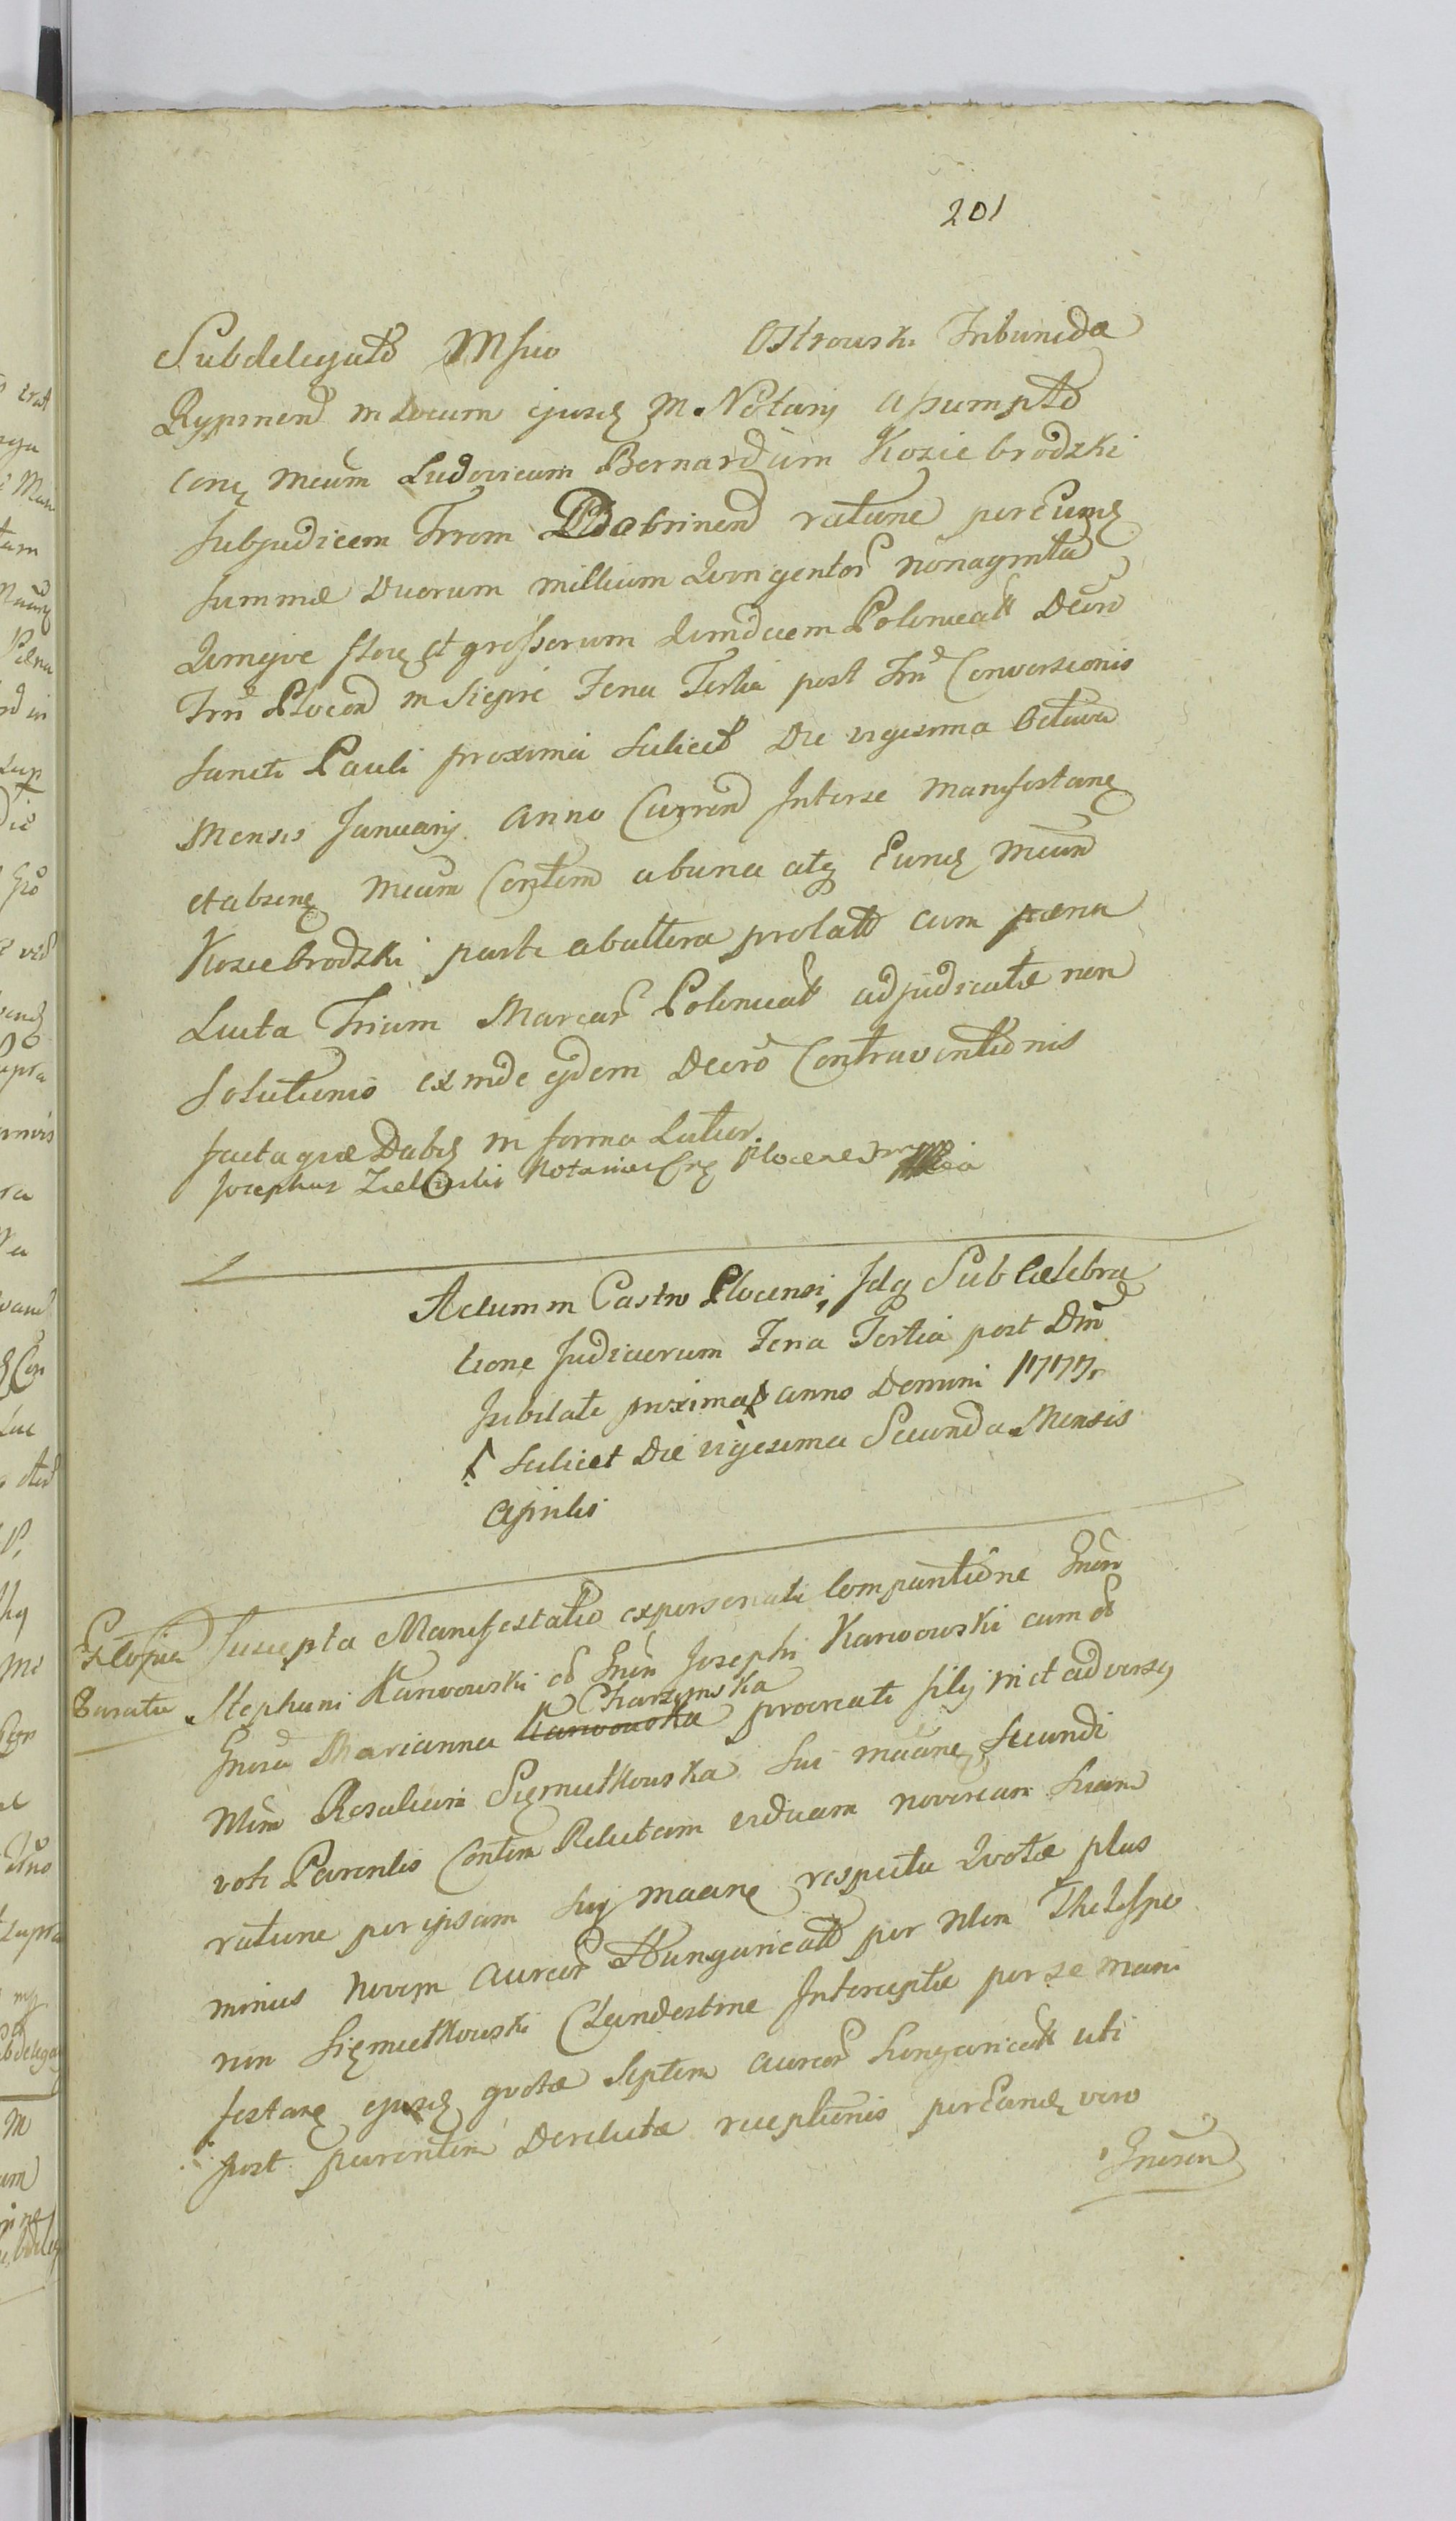 201
Subdelegato Mfico Ostrowski Tribunida
Rypinen in Locum ejusq M. Notarij assumpto
Conq Mcum Ludovicum Bernardum Koziebrodzki
Subjudicem Trrem Dobrinen ratione per Eumq
Summæ Duorum millium Quingentor nonaginta
Quinque floq et grossorum Quindecim Polonicall Decro
Trri Plocen in Sieprc Feria Tertia post Fm Conversionis
Sancti Pauli proxima scilicet Die vigesima Octava
Mensis January anno Curren Interse Manifestanq
et absenq Mcum Contem ab una atq Eunq Mcum
Koziebrodzki parte ab altera prolato cum pæna
Lucta Trium Marcar Polonicall adjudicatæ non
Solutionis exinde ejdem Decro Contraventionis
factaque Dabiq in forma Latior.
Josephus Zielinski Notarius Crq Plocens mp
Actum in Castro Plocensi, Idq Sub Cælebra
tione Judiciorum Feria Tertia post Dm
Jubilate proxima anno Domini 1777.
Scilicet Die vigesima Secunda Mensis
Aprilis
Suscepta Manifestatio ex personali Comparitione Gnen
Stephani Karwowski olo Gnen Josephi Karwowski cum olo
Charzynska
Gnosa Marianna Karwowska procreati filij in et adversq
Mlem Rosaliam Siemiethowska Sui maanq Secundi
voti Parentis Contem Relictam viduam novercam Suam
ratione per ipsam Suj maanq respectu Quotæ plus
minus Novem Aureor Hungaricall per Mlem Thelespo
ron Siemietkowski Clandestine Interceptæ per se Mani
festanq ejusq quotæ Septem Aureor Hungaricall uti
post parentem Derelictæ receptionis per Eandq vero
Gnosen